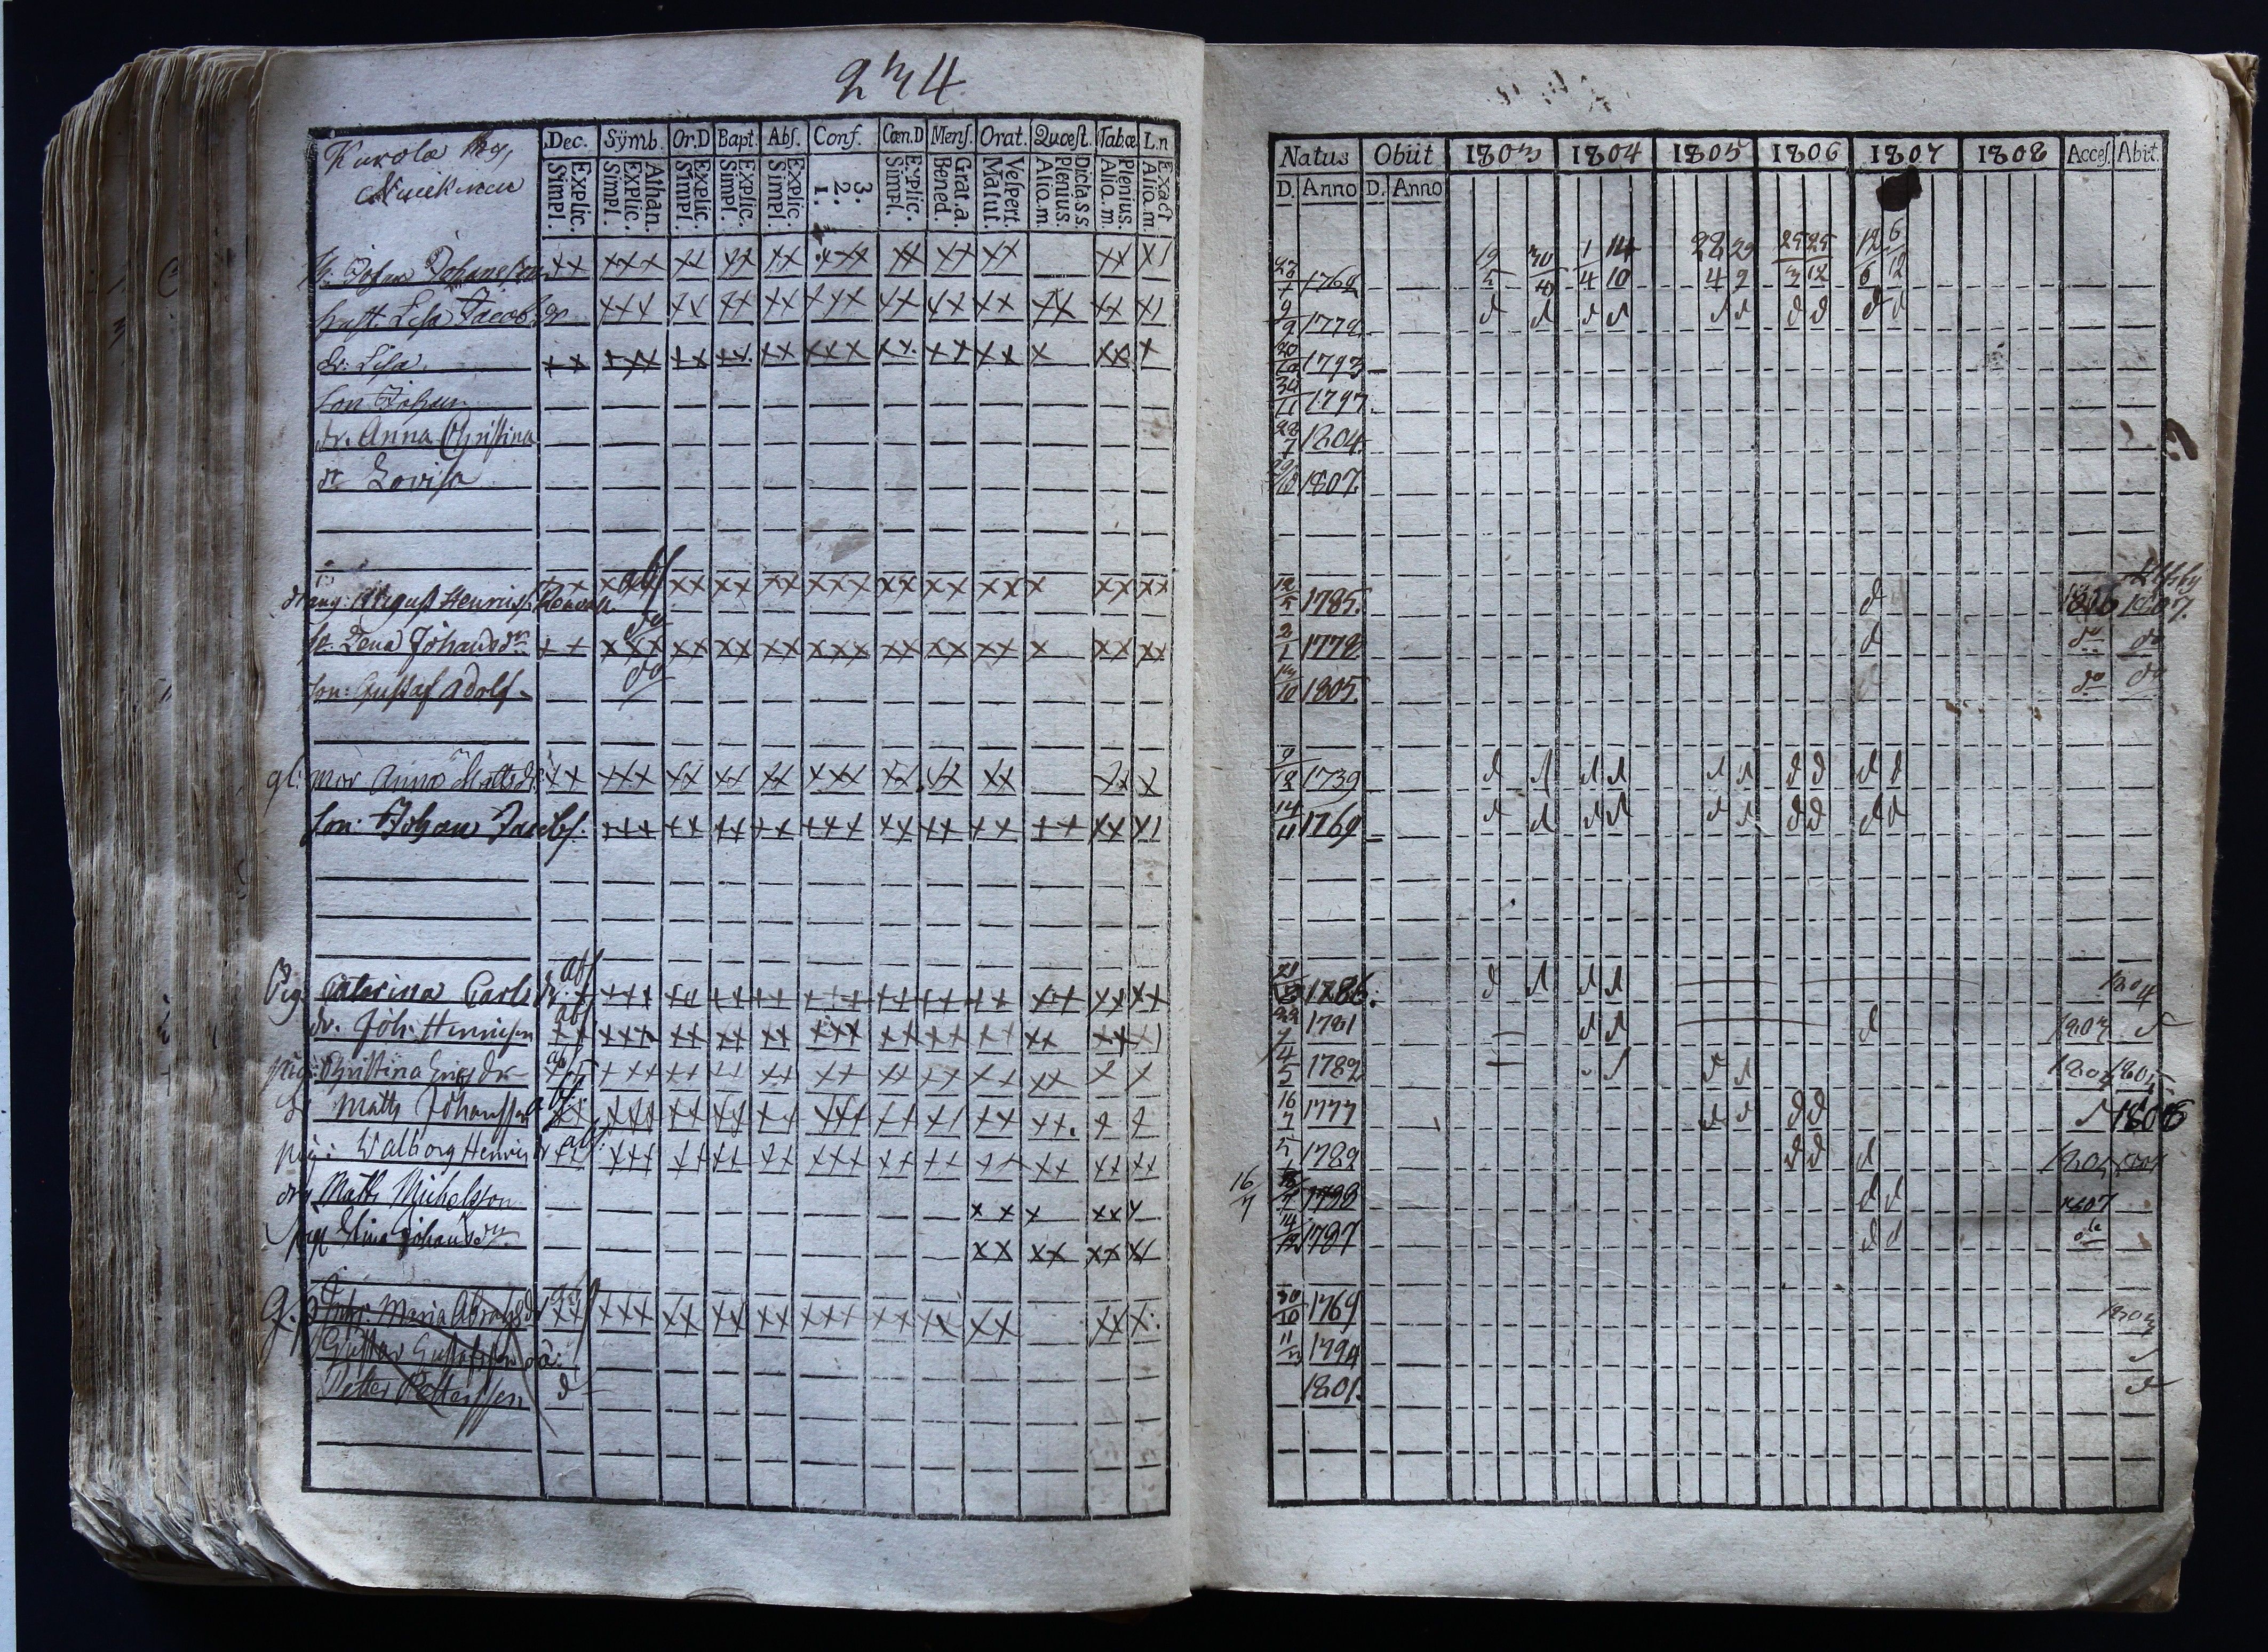 234
Dec. Symb. Or.D Bapt. Abs. Conf. Cœn.D Mens. Orat. Quœst. Tab.œ L.n
Simpl. Explic. Simpl. Explic. Athan. Simpl. Explic. Simpl. Explic. Simpl. Explic. 1. 2. 3. Simpl. Explic. Bened. Grat.a. Matut. Vespert. Alio.m. Plenius. Dicta.s.s Alio.m. Plenius. Alio.m. Exact
Johan Johansson xx xxx xx xx xx xxx xx xx xx xx x1
hust. Lisa Jacobsdr xxx xx xx xx xxx xx xx xx xx xx x1
dr. Lisa. xx xxx xx xx xx xxx xx. xx xx x xx x
son Johan
dr. Anna Christina
dr Lovisa
August Henrics. xx abs xx xx xx xxx xx xx xxx x xx xx
Lena Johansdr xx do xxx xx xx xx xxx xx xx xx x xx xx
son: Gustaf Adolf. do
mor Anna Mattsdr. xx xxx xx xx xx xxx xx xx xx xx x
son: Johan Jacobs. xxx xx xx xx xxx xx xx xx xx xx x1
Pig: Catarina Carlsdr. abs xxx xx xx xx xxx xx xx xx xx xx xx
dr. Joh: Henricsson abs xxx xx xx xx xxx xx xx xx xx xx x1
pig: Christina Ericsdr abs xxx xx xx xx xx xx xx xx xx x x
Matts Johansson abs xx xxx xx xx xx xxx xx x1 xx xx. x x
pig: Walborg Henricsdr abs xx xxx xx xx xx xxx xx xx xx xx xx xx
drg Matts Michelsson xx x xx x
pig Johansdr xx xx xx x1
Maria Abrahsdr abs xx xxx xx xx xx xxx xx xx xx xx x.
Gustav Gustafsson
Petter Pettersson d
Natus Obiit 1803 1804 1805 1806 1807 1808 Acces. Abit.
D. Anno D. Anno
1768 19/5 30/10 1/4 14/10 28/4 29/9 25/3 25/12 12/6 6/12
9/9 1772 d d d d d d d d d d
20/12 1793
30/11 1797.
28/7 1804.
29/10 1807.
12/5 1785. d 1806 1807.
2/1 1772 d do do
1805. do do
9/12 1739 d d d d d d d d d d
14/11 1769 d d d d d d d d d d
1786. d d d d 1804
1781 d d d 1803 d
14/5 1782 d d d d 1805
16/7 1777 d d d d d 1806
1789 d d d 1805 1807
16/7 d d 1807
14/12 1787 d d do
30/10 1769 1803
1794 d
1801. d